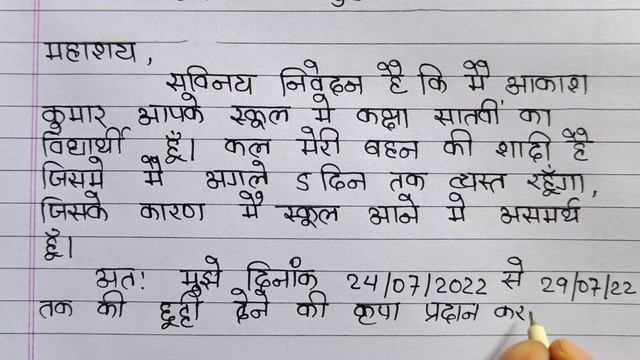 महाशय,
सविनय निवेदन है कि मै आकाश
कुमार आपके स्कूल मे कक्षा सातवीं का
विद्यार्थी हूँ। कल मेरी बहन की शादी है
जिसमे मै अगले 5 दिन तक व्यस्त रहूँगा,
जिसके कारण मै स्कूल आने मे असमर्थ
हूँ।
अत! मुझे दिनांक 24/07/2022 से 29/07/22
तक की छूट्टी देने की कृपा प्रदान कर